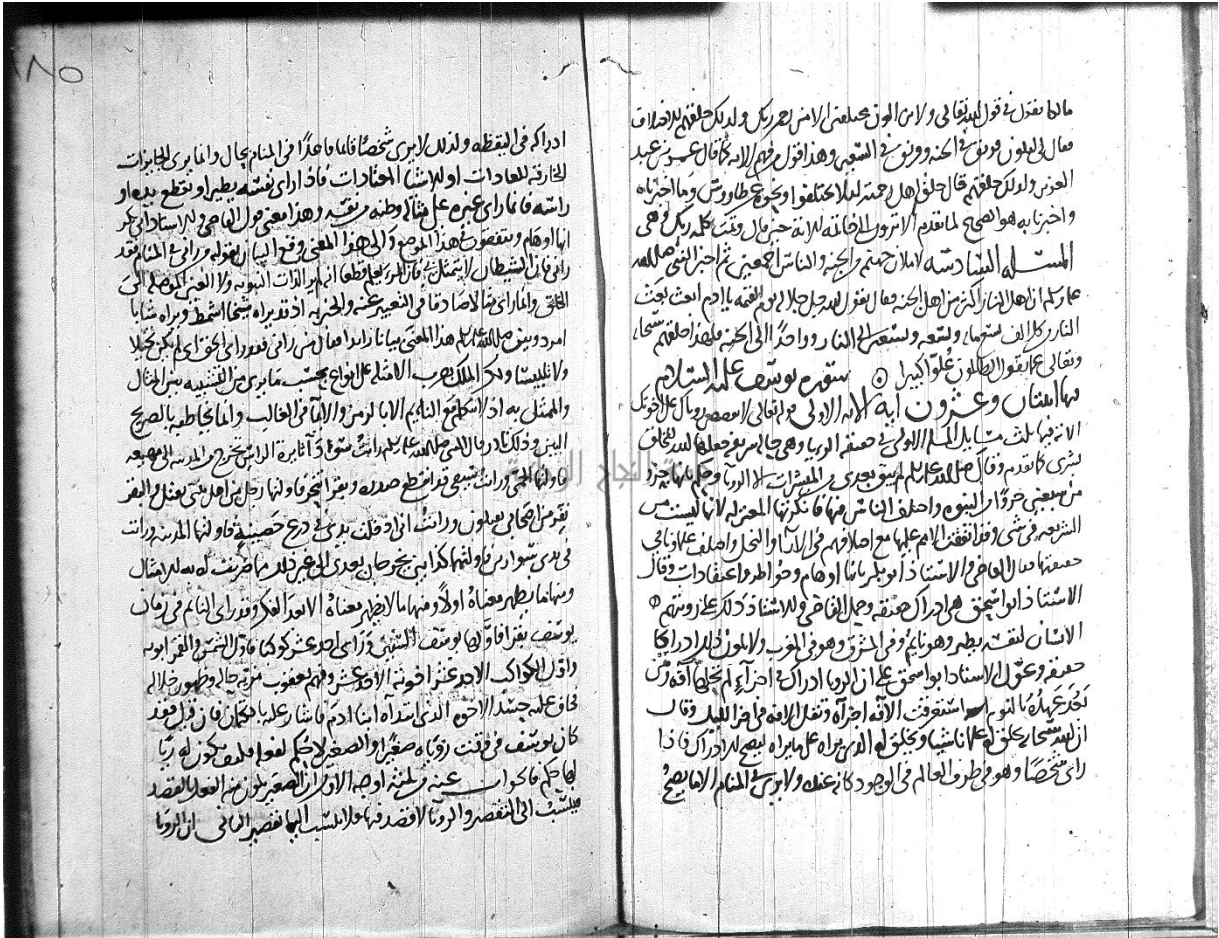 مالكا يقول في قول الله تعالى ولا يزالون مختلفين إلا من رحم ربك ولذلك خلقهم للاختلاف
فقال لي ليكون فريق في الجنة وفريق في السعير وهذا قول من فهم الآية كما قال عمر بن عبد
العزيز ولذلك خلقهم قال خلق أهل رحمته لئلا يختلفوا ونحوه عن طاووس وما اخترناه
واخبرنا به هو الصحيح لما تقدم ألا ترون إلى خاتمة الآية حين قال وتمت كلمة ربك وهي
المسئلة السادسة لأملأن جهنم من الجنة والناس أجمعين ثم أخبر النبي صلى الله
عليه وسلم أن أهل النار أكثر من أهل الجنة فقال يقول الله جل جلاله يوم القيمة يا آدم ابعث بعث
النار من كل ألف تسعمائة وتسعة وتسعين إلى النار وواحدا إلى الجنة فلهذا خلقهم سبحانه
وتعالى عما يقول الظالمون علوا كبيرا سورة يوسف عليه السلام
فيها اثنتان وعشرون آية الآية الأولى قوله تعالى لا تقصص رؤياك على إخوتك
الآية فيها ثلث مسايل المسئلة الأولى في حقيقة الرؤيا وهي حالة شريفة جعلها الله للخلق
بشرى كما تقدم وقال صلى الله عليه وسلم لم يبق بعدي من المبشرات إلا الرؤيا وحكم بأنها جزء
من سبعين جزءا من النبوة واختلف الناس فيها فأنكرتها المعتزلة لأنها ليست من
الشريعة في شي وقد اتفقت الأمم عليها مع اختلافهم في الآراء والنحل واختلف علماؤنا في
حقيقتها فقال القاضي والأستاذ أبو بكر إنها أوهام وخواطر واعتقادات وقال
الأستاذ أبو إسحق هي إدراك حقيقة وحمل القاضي والأستاذ ذلك على رؤية
الإنسان لنفسه يطير وهو نايم وفي المشرق وهو في المغرب ولا يكون ذلك إدراكا
حقيقة وعول الأستاذ أبو إسحق على أن الرؤيا إدراك في أجزاء لم تحلها آفة ومن
بعد عهده بالنوم استغرقت الآفة أجزاءه وتقل الآفة في آخر الليل وقال
إن الله سبحانه يخلق له علما ناشيا ويخلق له الذي يراه على ما يراه ليصح الإدراك فإذا
رأى شخصا وهو في طرف العالم في الوجود كأنه عنده ولا يرى في المنام إلا ما يصح
١٨٥
إدراكه في اليقظة ولذلك لا يرى شخصا قائما قاعدا في المنام بحال وإنما يرى الجايزات
الخارقة للعادات أو الأشياء المعتادات فإذا رأى نفسه يطير أو يقطع يده أو
رأسه فإنما رأى غيره على مثاله وظنه من نفسه وهذا معنى قول القاضي والأستاذ أبي بكر
إنها أوهام ويتفقون في هذا الموضع وإلى هذا المعنى وقع البيان بقوله من رآني في المنام فقد
رآني فإن الشيطان لا يتمثل بي فإن المرء يعلم قطعا أنه لم ير الذات النبوية ولا العين المرسلة إلى
الخلق وإنما رأى مثالا صادقا في التعبير عنه والخبر به إذ قد يراه شيخا أشمط ويراه شابا
أمرد وبين صلى الله عليه وسلم هذا المعنى بيانا زايدا فقال من رآني فقد رأى الحق أي لم يكن تخيلا
ولا تلبيسا ولكن الملك يضرب الأمثلة على أنواع بحسب ما يرى من التشبيه بين المثال
والممثل به إذ لا يتكلم مع النايم إلا بالرمز والإيماء في الغالب وربما خاطبه بالصريح
البين وذلك نادر قال النبي صلى الله عليه وسلم رأيت سوداء ثايرة الراس تخرج من المدينة إلى مهيعة
فأولتها الحمى ورأيت سيفي قد انقطع صدره وبقرا تنحر فأولتها رجل من أهل بيتي يقتل والبقر
نفر من أصحابي يقتلون ورأيت أني أدخلت يدي في درع حصينة فأولتها المدينة ورأيت
في يدي سوارين فأولتهما كذابين يخرجان بعدي إلى غير ذلك مما ضربت له به الأمثال
ومنها ما يظهر معناه أولا ومنها ما لا يظهر معناه إلا بعد الفكر وقد رأى النايم في زمان
يوسف بقرا فأولها يوسف السنين ورأى أحد عشر كوكبا فأول الشمس والقمر أبويه
وأول الكواكب الأحد عشر إخوته الأحد عشر وفهم يعقوب مزية حاله وظهور خلاله
فخاف عليه حسد الإخوة الذي ابتدأه ابنا آدم فأشار عليه بالكتمان فإن قيل فقد
كان يوسف في وقت رؤياه صغيرا والصغير لا حكم لفعله فكيف يكون لرؤيا
لها حكم فالجواب عنه من ثلثة أوجه الأول أن الصغير يكون منه الفعل بالقصد
فينسب إلى التقصير والرؤيا لا قصد فيها فلا ينسب إليها تقصير الثاني أن الرؤيا